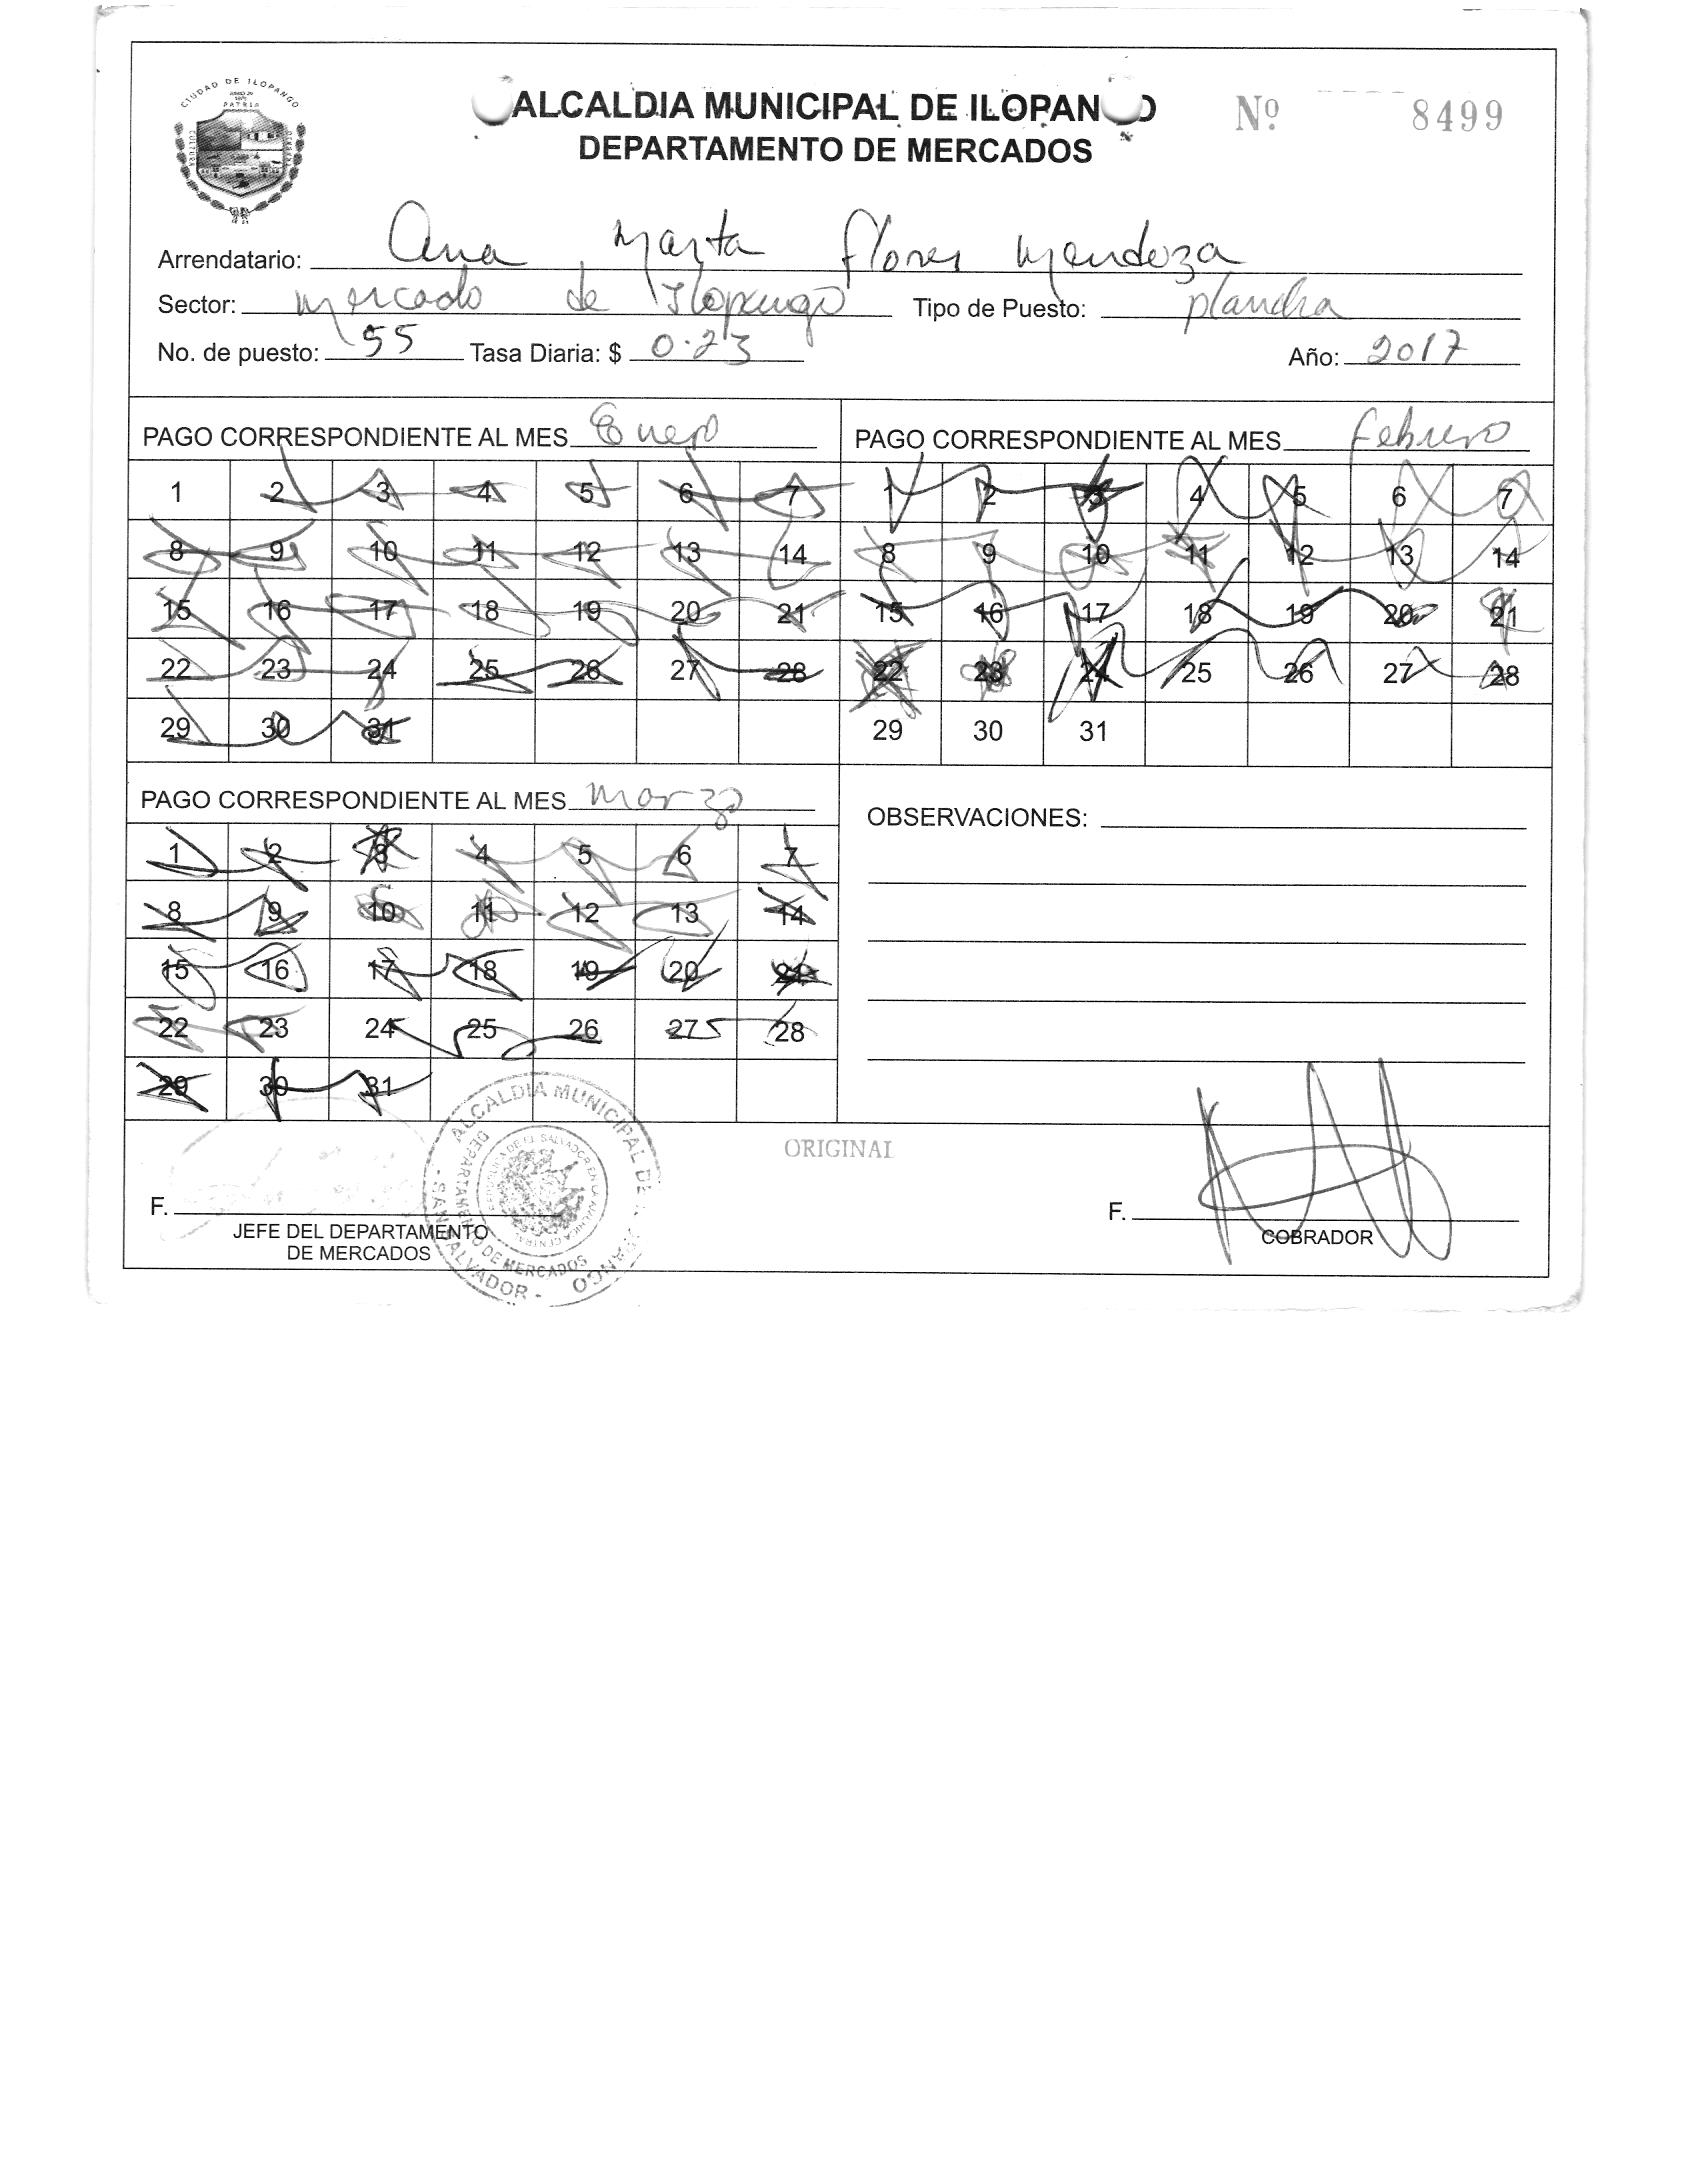 CIUDAD DE ILOPANGO
PATRIA
CULTURA
ALCALDIA MUNICIPAL DE ILOPAN O
DEPARTAMENTO DE MERCADOS
Nº 8499
Arrendatario: Ana Marta Flores Mendoza
Sector: Mercado de Ilopango Tipo de Puesto: plancha
No. de puesto: 55 Tasa Diaria: $ 0.23 Año: 2017
PAGO CORRESPONDIENTE AL MES Enero
1 2 3 4 5 6 7
8 9 10 11 12 13 14
15 16 17 18 19 20 21
22 23 24 25 26 27 28
29 30 31
PAGO CORRESPONDIENTE AL MES Febrero
1 2 3 4 5 6 7
8 9 10 11 12 13 14
15 16 17 18 19 20 21
22 23 24 25 26 27 28
29 30 31
PAGO CORRESPONDIENTE AL MES Marzo
1 2 3 4 5 6 7
8 9 10 11 12 13 14
15 16 17 18 19 20 21
22 23 24 25 26 27 28
29 30 31
OBSERVACIONES:
ORIGINAL
F.
JEFE DEL DEPARTAMENTO
DE MERCADOS
ALCALDIA MUNICIPAL DE
DEPARTAMENTO DE MERCADOS
- SAN SALVADOR -
F.
COBRADOR